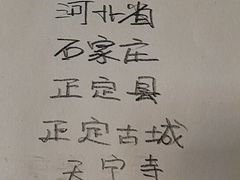 河北省
石家庄
正定县
正定古城
天宁寺